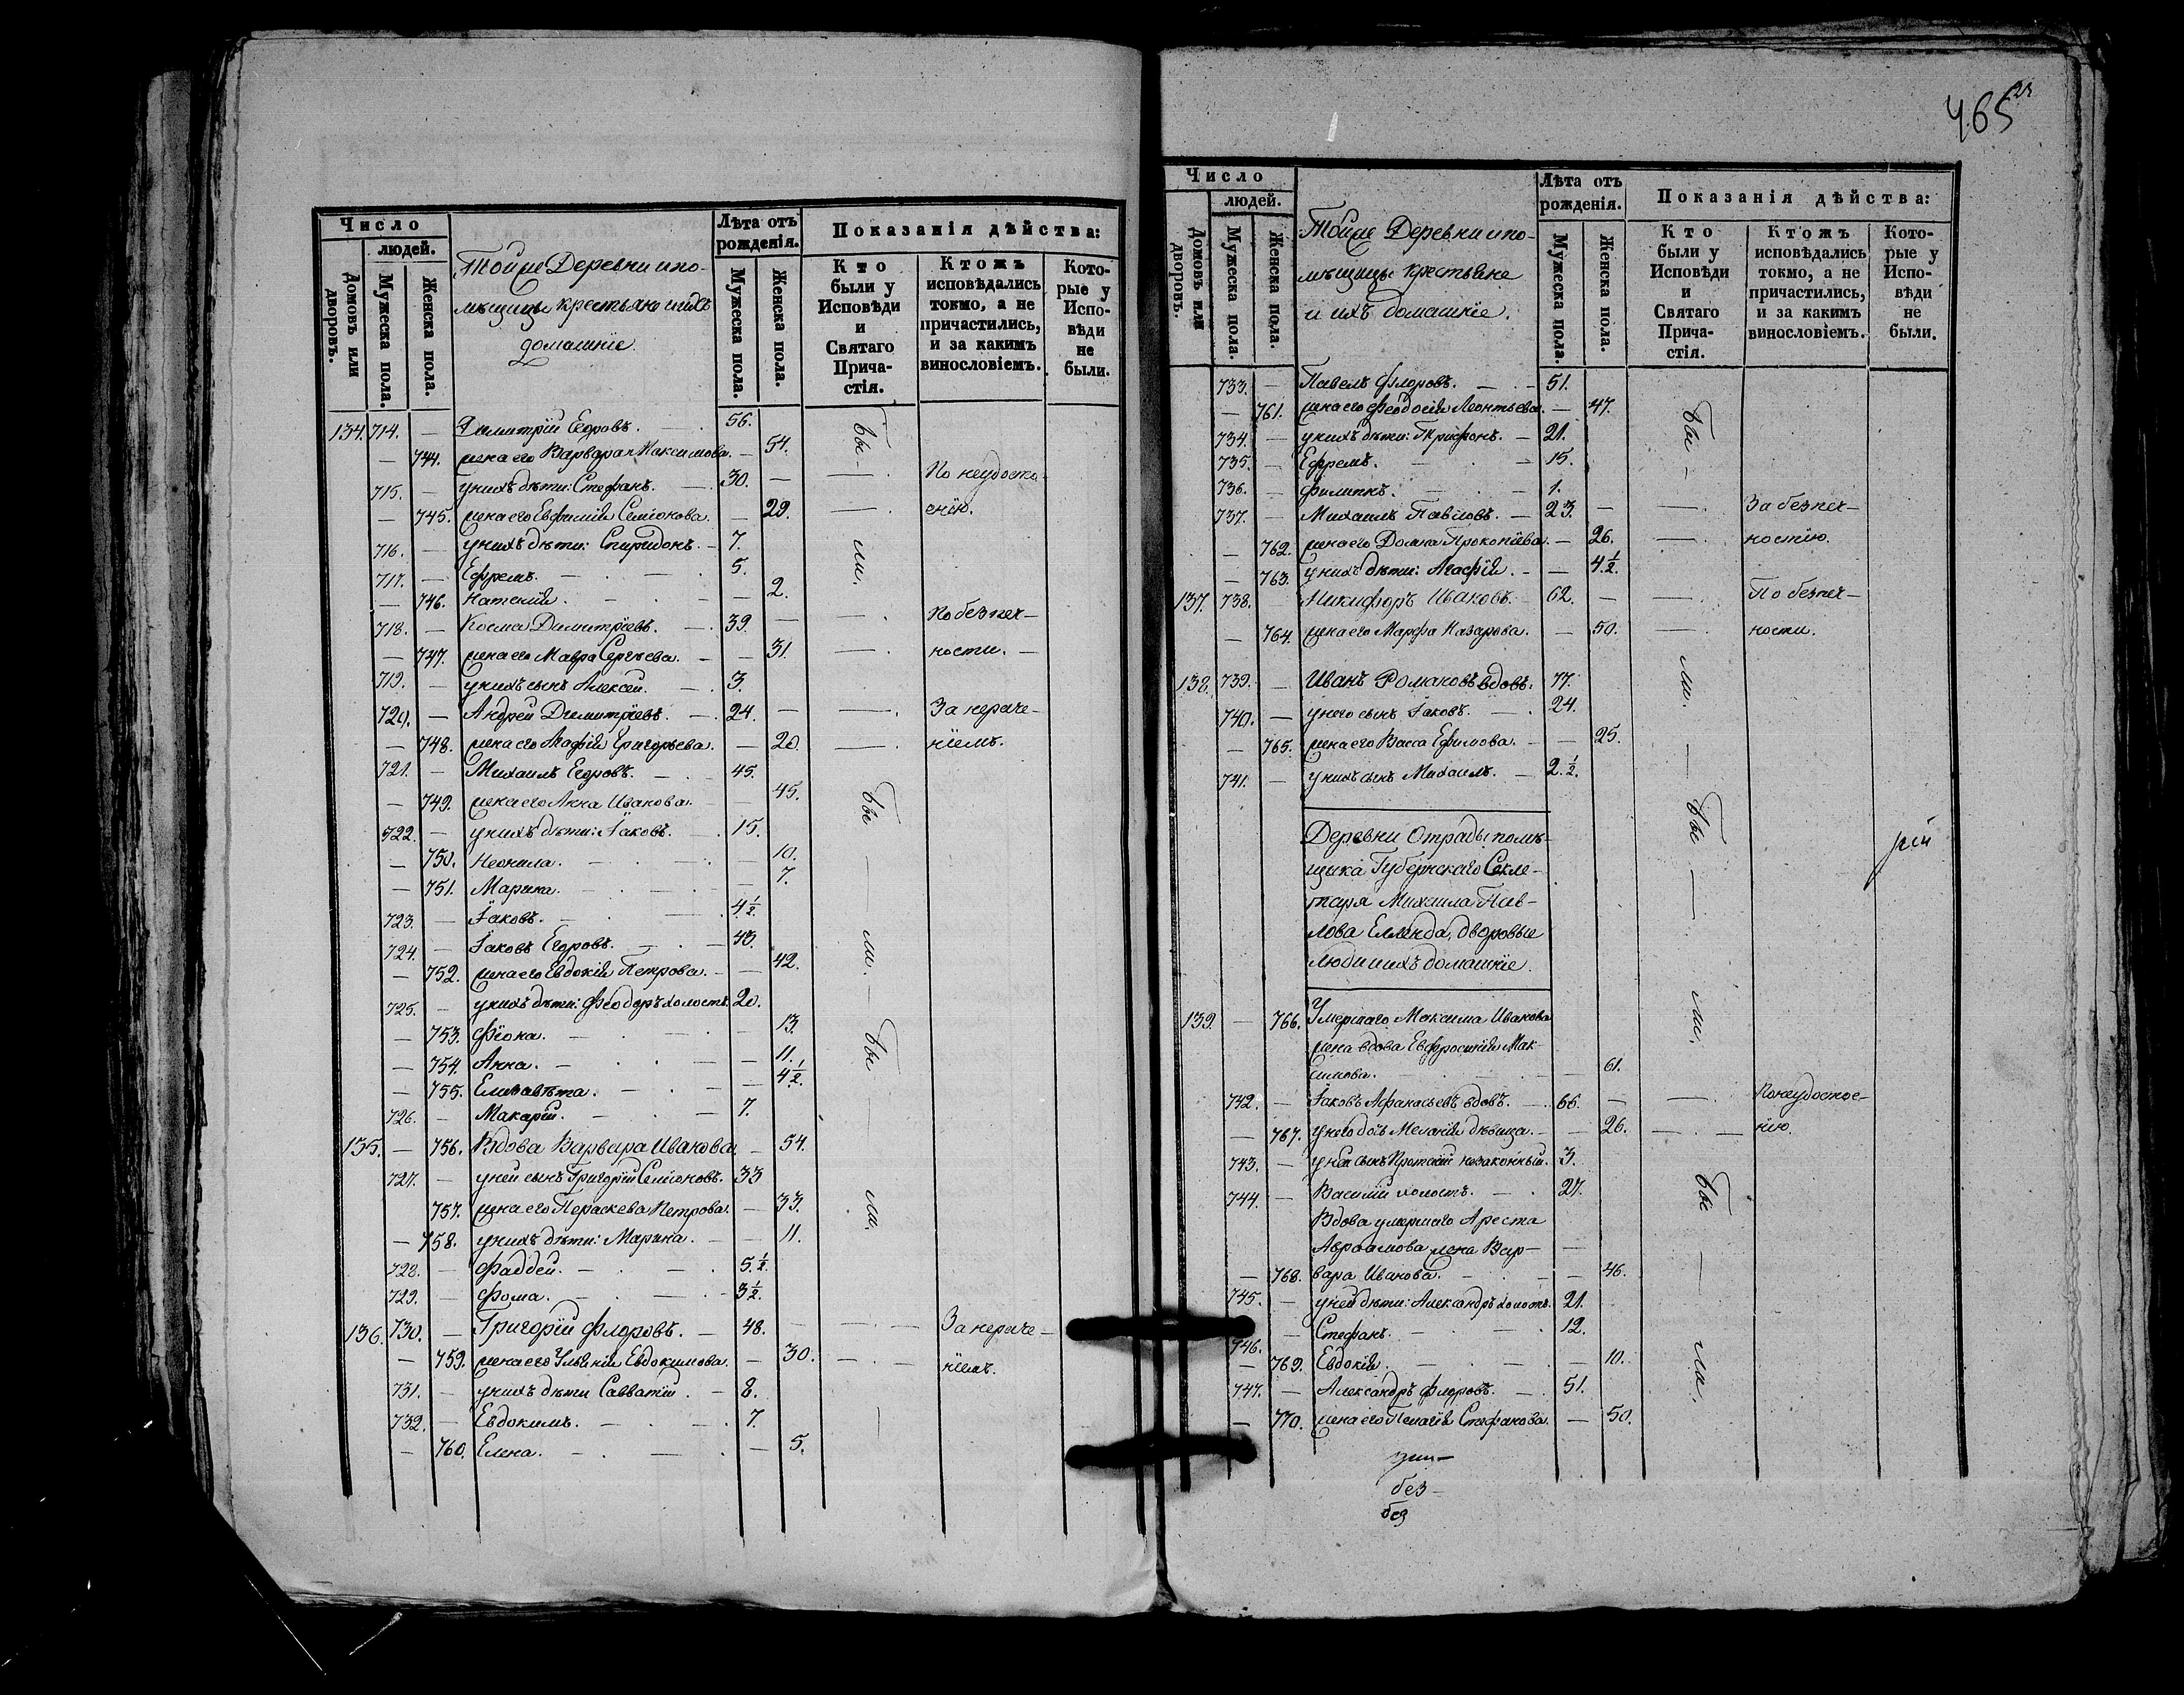 465
Число
людей.
Домовъ или дворовъ.
Мужеска пола.
Женска пола.
Тойже Деревни и по-
мѣщицы крестьяне и ихъ
домашніе.
Лѣта отъ рожденія.
Мужеска пола.
Женска пола.
Показанія дѣйства:
Кто были у Исповѣди и Святаго Прича-стія.
Ктожъ исповѣдались токмо, а не причастились, и за какимъ винословіемъ.
Кото-рые у Испо-вѣди не были.
134. 714. — Димитрій Егоровъ. — 56.
— 744. жена его Варвара Максимова. — 54.
715. — у нихъ дѣти: Стефанъ. — 30. — По неудосто-
— 745. жена его Евфимія Семіонова. — 29. — енію.
716. — у нихъ дѣти: Спиридонъ. — 7.
717. — Ефремъ. — 5.
— 746. Наталія. — 2.
718. — Косма Димитріевъ. — 39. — По безпеч-
— 747. жена его Мавра Сергѣева. — 31. — ности. —
719. — у нихъ сынъ Алексей. — 3.
720. — Андрей Димитріевъ. — 24. — За нераче-
— 748. жена его Агафія Григорьева. — 20. — ніемъ.
721. — Михаилъ Егоровъ. — 45.
— 749. жена его Анна Иванова. — 45.
722. — у нихъ дѣти: Іаковъ. — 15.
— 750. Неонила. — 10.
— 751. Марина. — 7.
723. — Іаковъ. — 4 1/2.
724. — Іаковъ Егоровъ. — 43.
— 752. жена его Евдокія Петрова. — 42.
725. — у нихъ дѣти: Феодоръ холостъ. 20.
— 753. Фіона. — 13.
— 754. Анна. — 11.
— 755. Елисавѣта. — 4 1/2.
726. — Макарій. — 7.
135. — 756. Вдова Варвара Иванова. — 54.
727. — у ней сынъ Григорій Семіоновъ. 33
757. жена его Параскева Петрова. — 33.
— 758. у нихъ дѣти: Марина. — 11.
728. — Фаддей. — 5 1/2.
729. — Фома. — 3 1/2.
136. 730. — Григорій Флоровъ. — 48. — За нераче-
— 759. жена его Ульянія Евдокимова. — 30. — ніемъ.
731. — у нихъ дѣти Савватій. — 8.
732. — Евдокимъ. — 7.
— 760. Елена. — 5.
бы — ли.
бы — ли.
бы — ли.
Число
людей.
Домовъ или дворовъ.
Мужеска пола.
Женска пола.
Тойже Деревни и по-
мѣщицы крестьяне
и ихъ домашніе.
Лѣта отъ рожденія.
Мужеска пола.
Женска пола.
Показанія дѣйства:
Кто были у Исповѣди и Святаго Прича-стія.
Ктожъ исповѣдались токмо, а не причастились, и за какимъ винословіемъ.
Кото-рые у Испо-вѣди не были.
733. — Павелъ Флоровъ. — 51.
— 761. жена его Феодосія Леонтьева. — 47.
734. — у нихъ дѣти: Трифонъ. — 21.
735. — Ефремъ. — 15.
736. — Филиппъ. — 1.
737. — Михаилъ Павловъ. — 23. — За безпеч-
— 762. жена его Домна Прокопіева. — 26. — ностію.
— 763. у нихъ дѣти: Агафія. — 4 1/2.
137. 738. — Никифоръ Ивановъ. — 62. — По безпеч-
— 764. жена его Марфа Назарова. — 50. — ности.
138. 739. — Иванъ Романовъ вдовъ. 77.
740. — у него сынъ Іаковъ. — 24.
— 765. жена его Васса Ефимова. — 25.
741. — у нихъ сынъ Михаилъ. — 2 1/2.
Деревни Отрады помѣ-
щика Губернскаго Секре-
таря Михаила Пав-
лова Елленда, дворовые
люди и ихъ домашніе.
139. — 766. Умершаго Максима Иванова
жена вдова Евфросинія Мак-
симова. — 61.
742. — Іаковъ Афанасьевъ вдовъ. — 66. — По неудостое-
— 767. у него дочь Меланія дѣвица. — 26. — нію.
743. — у ней сынъ незаконный. 3.
744. — Василій холостъ. — 27.
Вдова умершаго Ареста
Авраамова жена Вар-
— 768. вара Иванова. — 46.
745. — у ней дѣти: Александръ холостъ. 21.
746. — Стефанъ. — 12.
— 769. Евдокія. — 10.
747. — Александръ Флоровъ. — 51.
— 770. жена его Пелагія Стефанова. — 50.
бы — ли.
бы — ли.
бы — ли.
рей
без-
без